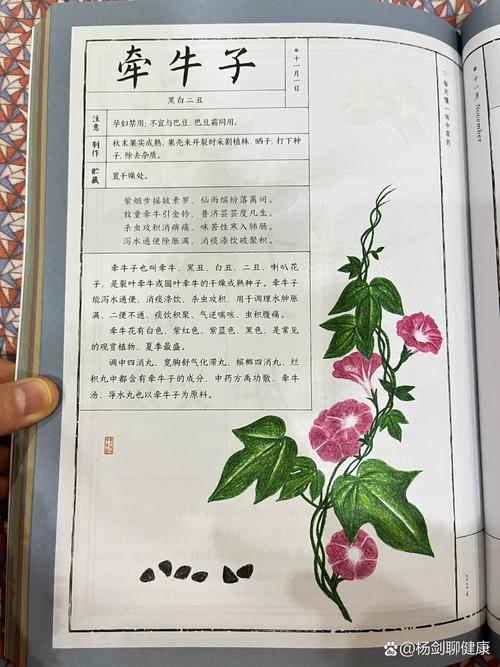 牵牛子
黑白二丑
十一月一日
注意
孕妇禁用；不宜与巴豆、巴豆霜同用。
制作
秋末果实成熟、果壳未开裂时采割植株，晒干，打下种
子，除去杂质。
贮藏
置干燥处。
紫烟步摇披素罗，仙雨缤纷落篱间。
牧童牵牛引金铃，普济芸芸度凡生。
杀虫攻积消痹痛，味苦性寒入肺肠。
泻水通便除胀满，消痰涤饮破聚积。
牵牛子也叫牵牛，黑丑、白丑、二丑、喇叭花
子，是裂叶牵牛或圆叶牵牛的干燥成熟种子。牵牛子
能泻水通便，消痰涤饮，杀虫攻积，用于调理水肿胀
满、二便不通、痰饮积聚、气逆喘咳、虫积腹痛。
牵牛花有白色、紫红色、紫蓝色、黑色，是常见
的观赏植物，夏季最盛。
调中四消丸、宽胸舒气化滞丸、槟榔四消丸、烂
积丸中都含有牵牛子的成分，中药方禹功散、牵牛
汤、导水丸也以牵牛子为原料。
每天懂一味中草药
十一月 November
@杨剑聊健康